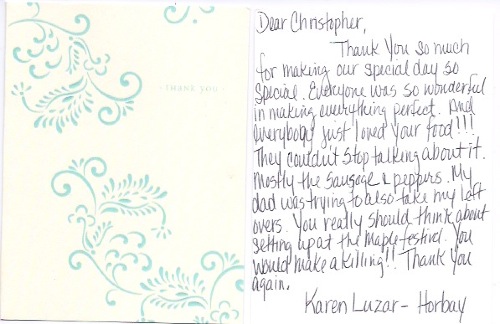 - THANK YOU -
Dear Christopher,
Thank You so much
for making our special day so
special. Everyone was so wonderful
in making everything perfect. And
everybody just loved your food!!!
They couldn't stop talking about it.
Mostly the sausage & peppers. My
dad was trying to also take my left
overs. You really should think about
setting up at the Maple festival. You
would make a killing!! Thank you
again.
Karen Luzar-Horbay